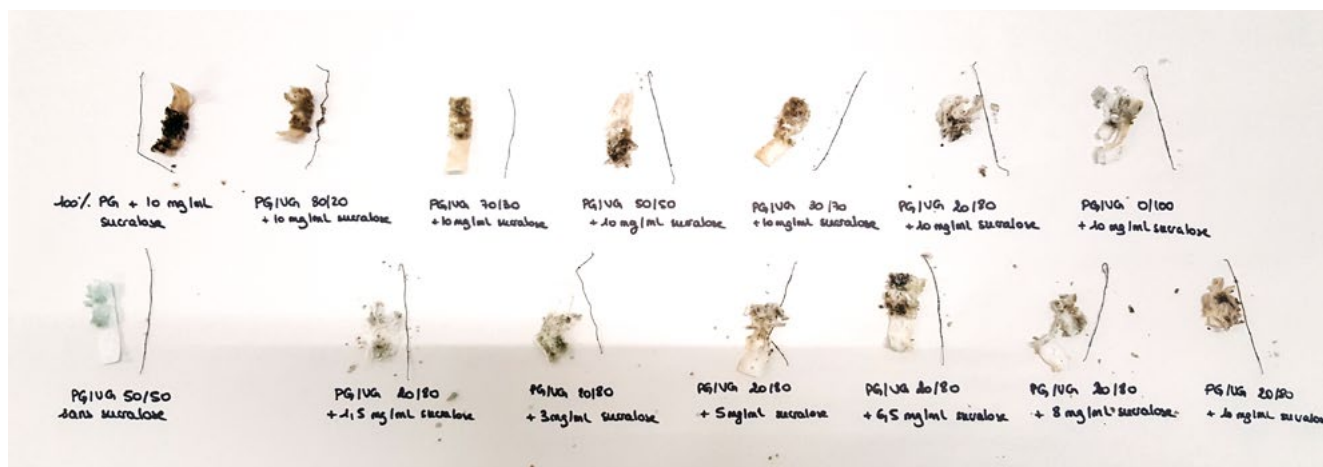 100% PG + 10 mg/mL
sucralose
PG/VG 80/20
+ 10 mg/mL sucralose
PG/VG 70/30
+ 10 mg/mL sucralose
PG/VG 50/50
+ 10 mg/mL sucralose
PG/VG 30/70
+ 10 mg/mL sucralose
PG/VG 20/80
+ 10 mg/mL sucralose
PG/VG 0/100
+ 10 mg/mL sucralose
PG/VG 50/50
sans sucralose
PG/VG 20/80
+ 1,5 mg/mL sucralose
PG/VG 20/80
+ 3mg/mL sucralose
PG/VG 20/80
+ 5mg/mL sucralose
PG/VG 20/80
+ 6,5 mg/mL sucralose
PG/VG 20/80
+ 8 mg/mL sucralose
PG/VG 20/80
+ 10 mg/mL sucralose